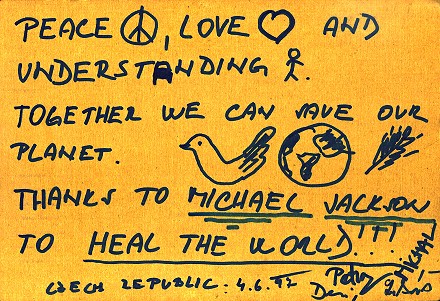 PEACE, LOVE AND
UNDERSTANDING.
TOGETHER WE CAN SAVE OUR
PLANET.
THANKS TO MICHAEL JACKSON
TO HEAL THE WORLD...!!!
CZECH REPUBLIC. 4.6.92
MICHAL